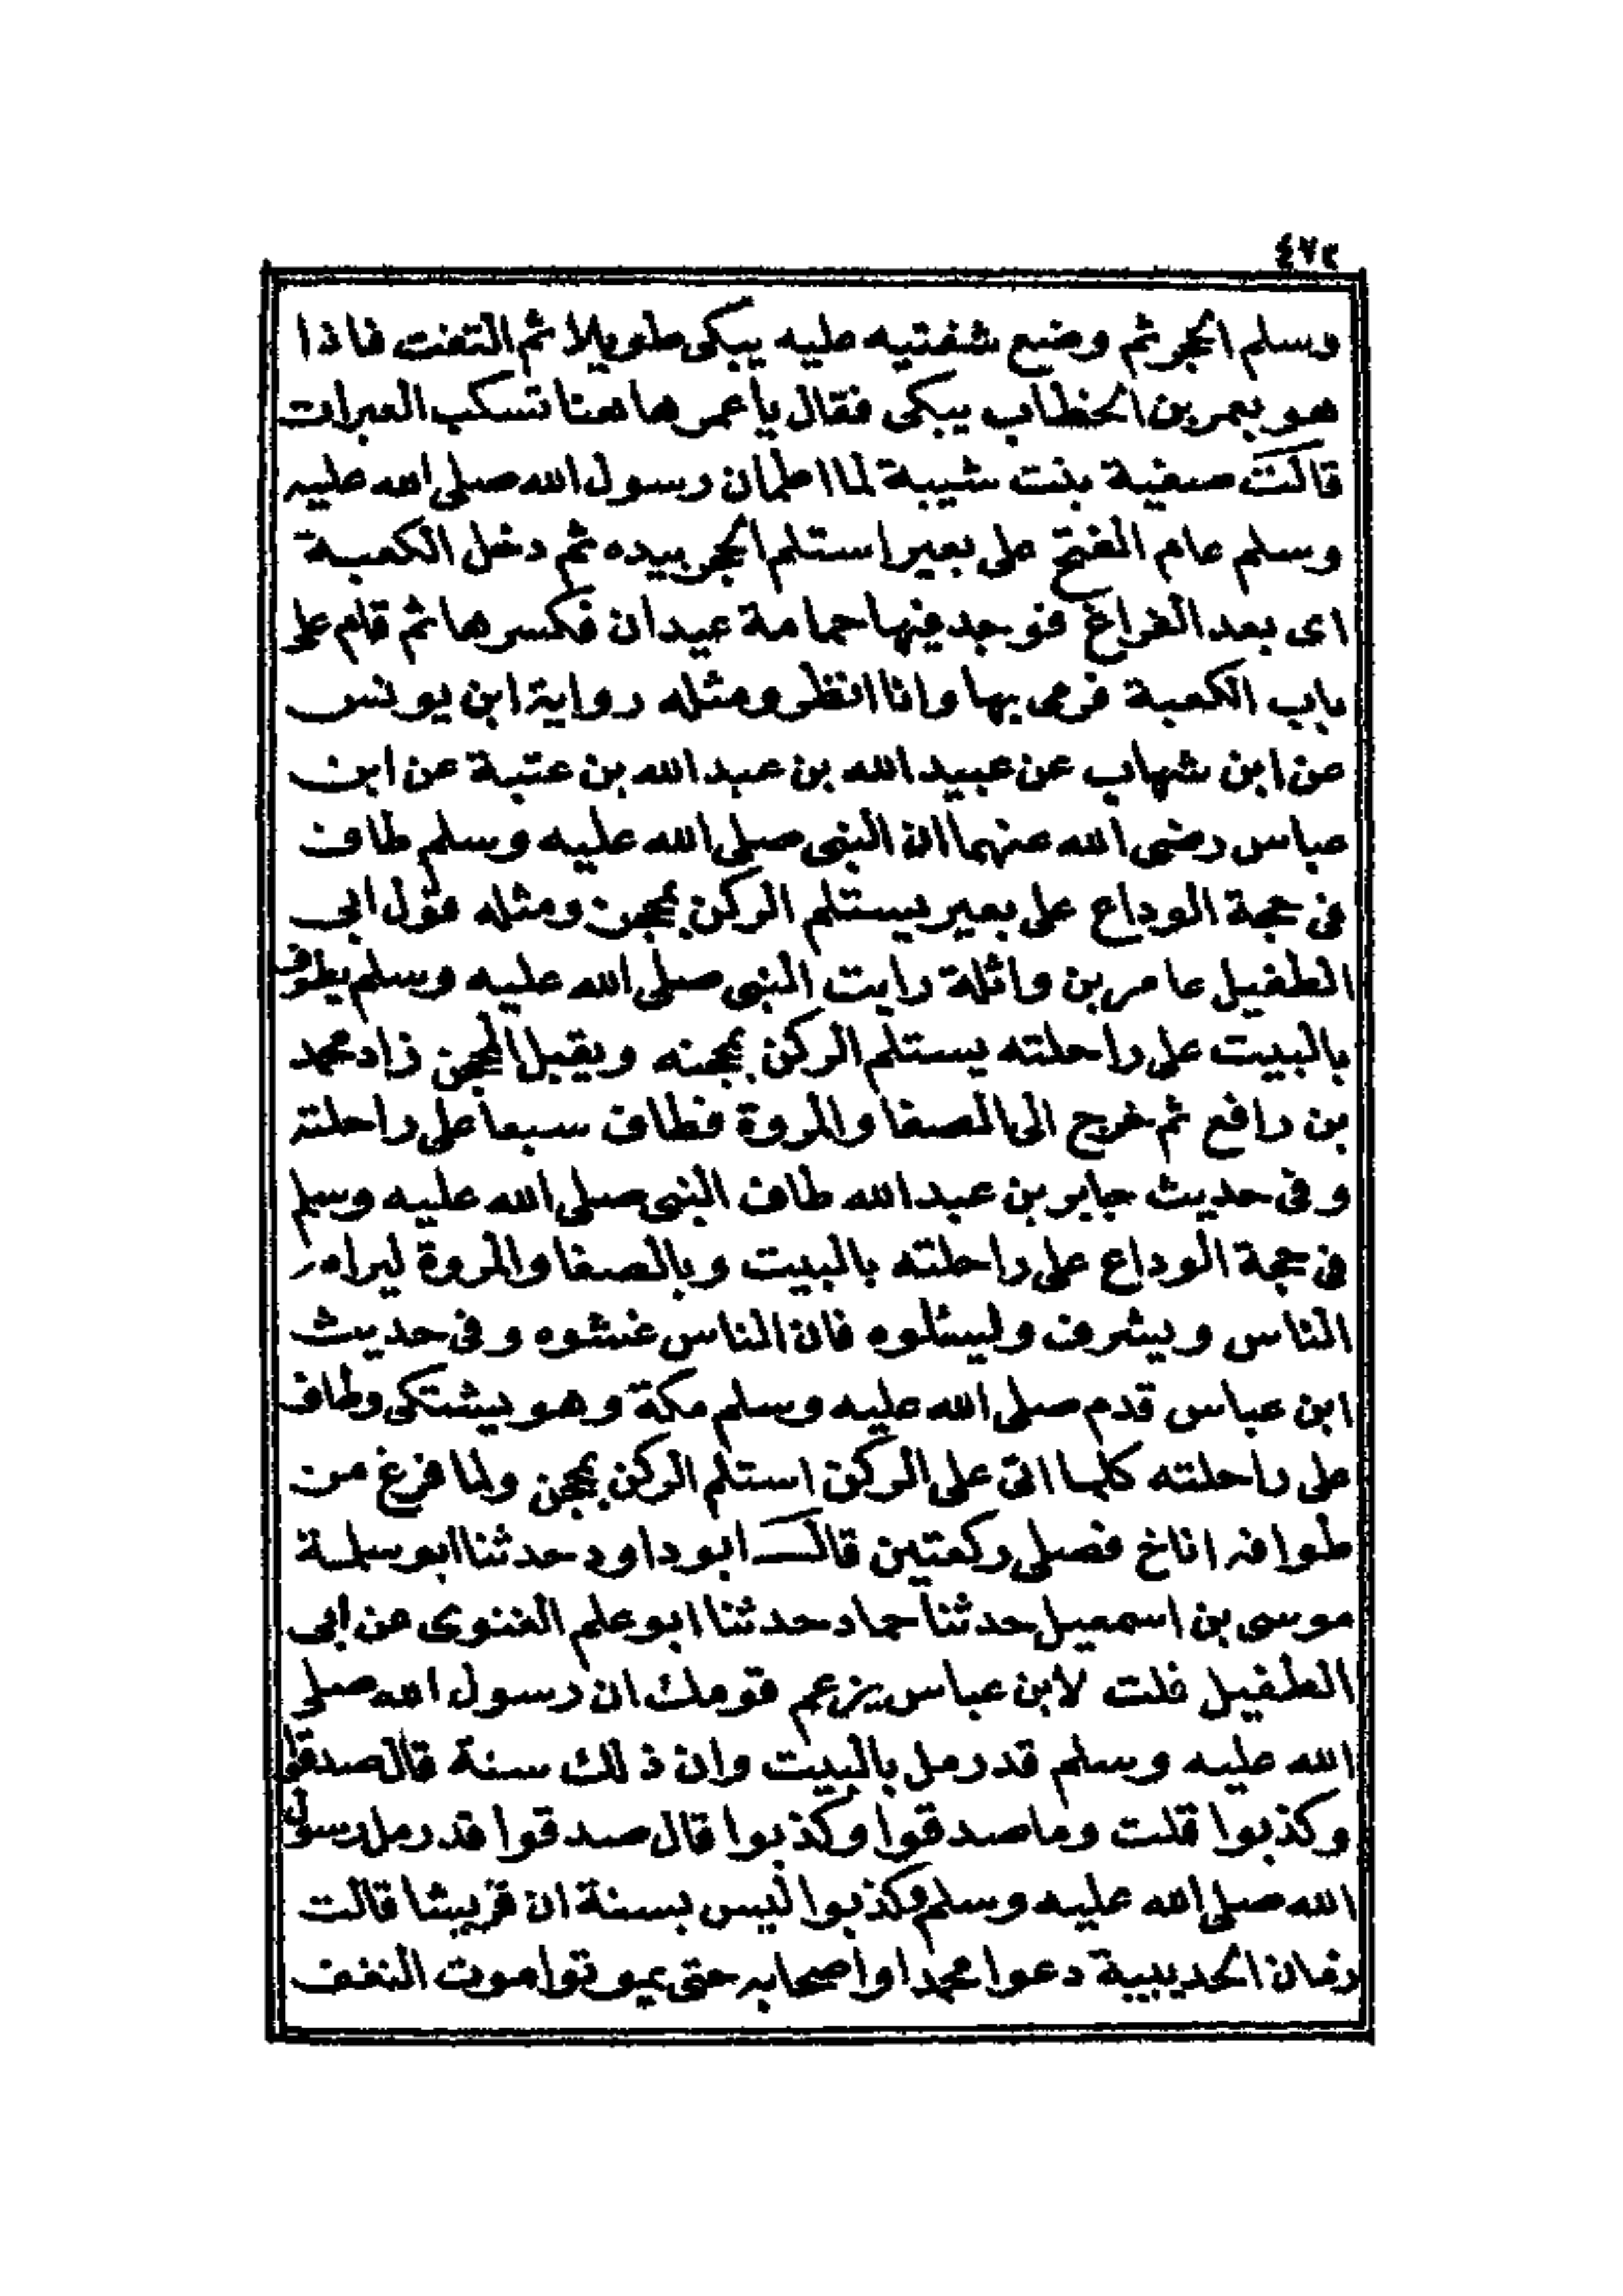 ٤٧٤
وسلم الحجر ثم وضع شفتيه عليه يبكى طويلا ثم التفت فاذا
هو بعمر بن الخطاب يبكى فقال يا عمر هاهنا تسكب العبرات
قالت صفية بنت شيبة لما اطمان رسول الله صلى الله عليه
وسلم عام الفتح على بعير استلم الحجر بيده ثم دخل الكعبة
اى بعد الفراغ فوجد فيها حمامة عيدان فكسرها ثم قام على
باب الكعبة فرمى بها وانا انظر ومثله رواية ابن يونس
عن ابن شهاب عن عبيد الله بن عبد الله بن عتبة عن ابن
عباس رضى الله عنهما ان النبى صلى الله عليه وسلم طاف
فى حجة الوداع على بعير يستلم الركن بمحجن ومثله قول ابى
الطفيل عامر بن واثلة رايت النبى صلى الله عليه وسلم يطوف
بالبيت على راحلته يستلم الركن بمحجنه ويقبل المحجن زاد محمد
بن رافع ثم خرج الى الصفا والمروة فطاف سبعا على راحلته
وفى حديث جابر بن عبد الله طاف النبى صلى الله عليه وسلم
فى حجة الوداع على راحلته بالبيت وبالصفا والمروة ليراه
الناس ويشرف وليسئلوه فان الناس غشوه وفى حديث
ابن عباس قدم صلى الله عليه وسلم مكة وهو يشتكى وطاف
على راحلته كلما اتى على الركن استلم الركن بمحجن ولما فرغ من
طوافه اناخ فصلى ركعتين قال ابو داود حدثنا ابو سلمة
موسى بن اسمعيل حدثنا حماد حدثنا ابو علم الغنوى عن ابى
الطفيل قلت لابن عباس يزعم قومك ان رسول الله صلى
الله عليه وسلم قد رمل بالبيت وان ذلك سنة قال صدقوا
وكذبوا قلت وما صدقوا وكذبوا قال صدقوا قد رمل رسول
الله صلى الله عليه وسلم وكذبوا ليس بسنة ان قريشا قالت
زمان الحديبية دعوا محمدا واصحابه حتى يموتوا موت النغف